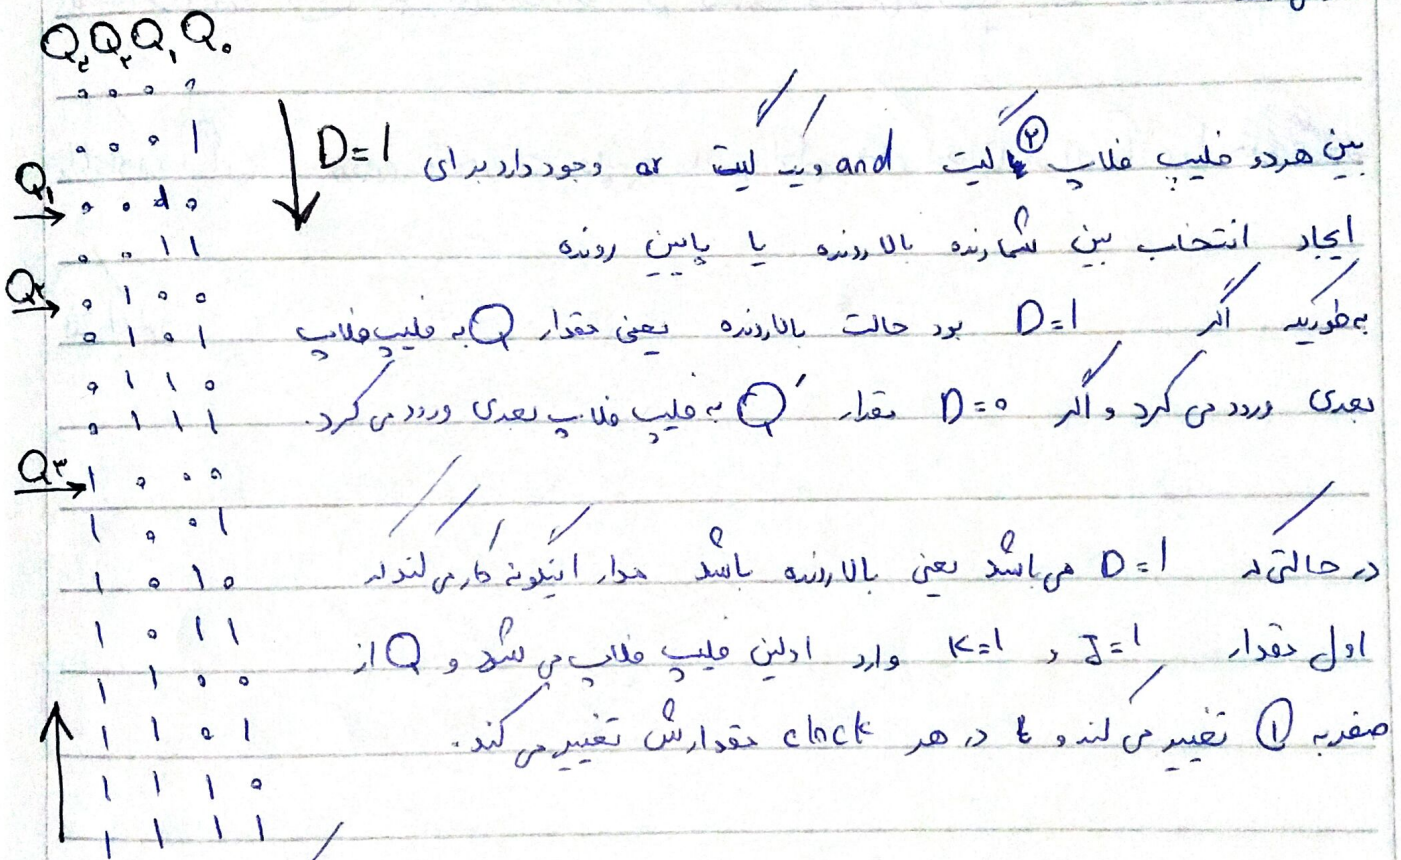 Q₃ Q₂ Q₁ Q₀
0 0 0 0
0 0 0 1
Q₁ → 0 0 1 0
0 0 1 1
Q₂ → 0 1 0 0
0 1 0 1
0 1 1 0
0 1 1 1
Q۳ → 1 0 0 0
1 0 0 1
1 0 1 0
1 0 1 1
1 1 0 0
1 1 0 1
1 1 1 0
1 1 1 1
D=1
بین هر دو فلیپ فلاپ ۲ گیت and و یک گیت or وجود دارد برای
ایجاد انتخاب بین شمارنده بالا رونده یا پایین رونده
به طوریکه اگر D=1 بود حالت بالارونده یعنی مقدار Q به فلیپ فلاپ
بعدی ورود می کرد و اگر D=0 مقدار Q′ به فلیپ فلاپ بعدی ورود می کرد.
در حالتی که D=1 می باشد یعنی بالا رونده باشد مدار اینگونه کار می کند که
اول مقدار J=1 و K=1 وارد اولین فلیپ فلاپ می شود و Q از
صفر به 1 تغییر می کند و در هر clock مقدارش تغییر می کند.